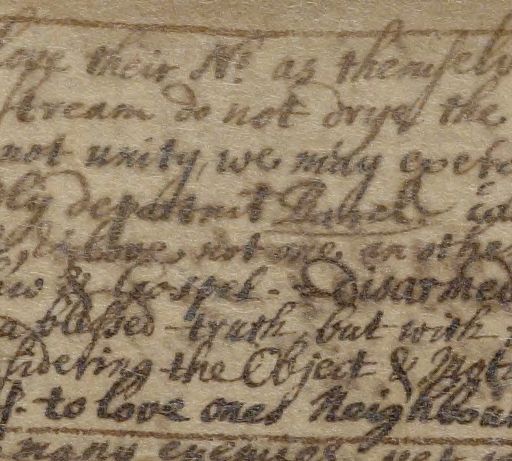 love their Nr. as themselv
stream do not drye the
not unity, we may exerc
department
love not one an othe
w & Gospel - disarmed
a blessed - truth, but with
sidering the Object & Not
t. to love ones Neighbour
many enemies, yet